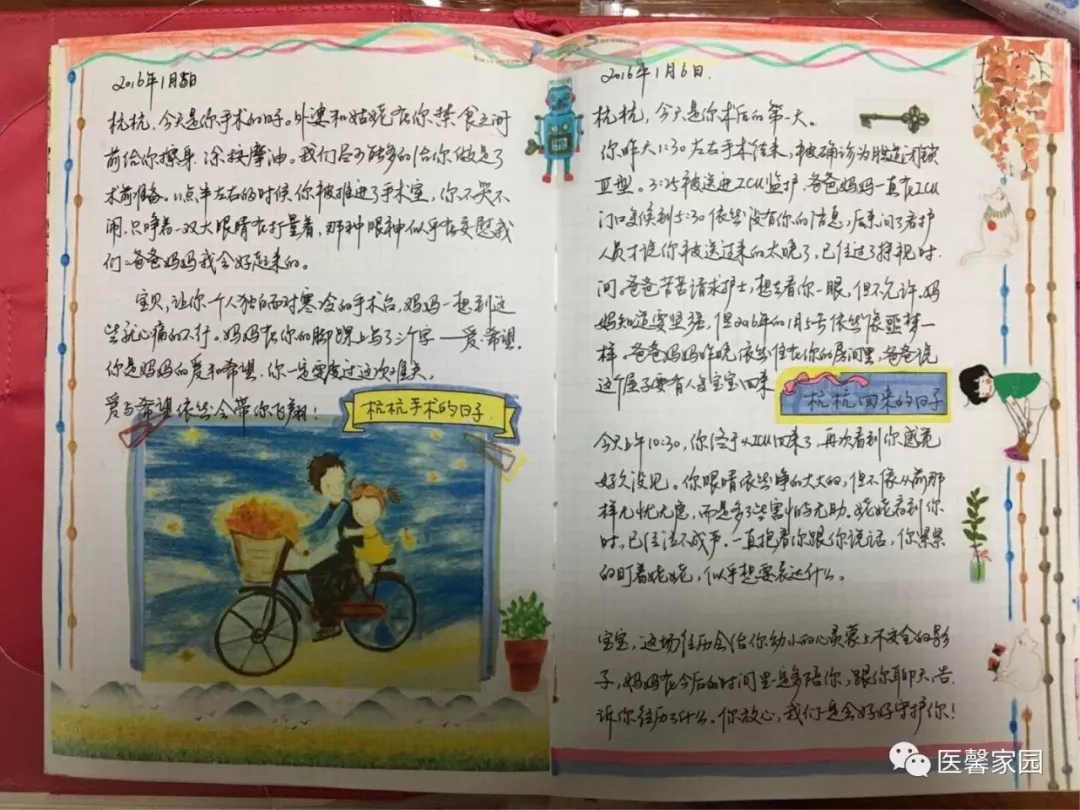 2016年1月5日
杭杭，今天是你手术的日子。外婆和姑姥在你禁食之间
前给你擦身、涂按摩油。我们尽可能多的给你做足了
术前准备。11点半左右的时候你被推进了手术室，你不哭不
闹，只睁着一双大眼睛在打量着，那种眼神似乎在安慰我
们：爸爸妈妈我会好起来的。
宝贝，让你一个人独自面对寒冷的手术台，妈妈一想到这
些就心痛的不行。妈妈在你的脚踝上写了三个字——爱·希望。
你是妈妈的爱和希望，你一定要度过这次难关，
爱与希望依然会带你飞翔！
杭杭手术的日子
2016年1月6日.
杭杭，今天是你术后的第一天。
你昨天1:30左右手术结束，被确诊为胆道闭锁
Ⅲ型。3:25被送进ICU监护，爸爸妈妈一直在ICU
门口等候到5:30依然没有你的信息，后来问了看护
人员才说你被送过来的太晚了，已经过了探视时
间。爸爸苦苦请求护士，想去看你一眼，但不允许。妈
妈知道要坚强，但2016年的1月5号依然像噩梦一
样。爸爸妈妈昨晚依然住在你的房间里，爸爸说
这个屋子要有人等宝宝回来
杭杭回来的日子
今天上午10:30，你终于从ICU回来了，再次看到你感觉
好久没见。你眼睛依然睁的大大的，但不像从前那
样无忧无虑，而是多了些害怕与无助。姥姥看到你
时，已经泣不成声，一直抱着你跟你说话，你累累
的盯着姥姥，似乎想要表达什么。
宝宝，这场经历会给你幼小的心灵蒙上不安全的影
子，妈妈在今后的时间里一定多陪你，跟你聊天，告
诉你经历了什么。你放心，我们定会好好守护你！
医馨家园